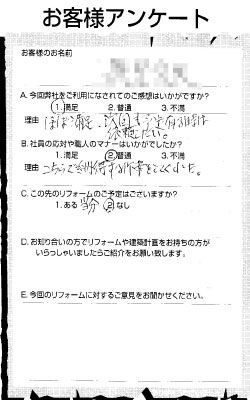 お客様アンケート
お客様のお名前
A. 今回弊社をご利用になされてのご感想はいかがですか?
1. 満足 2. 普通 3. 不満
理由 ほぼ満足、次回も予定有る時は
依頼したい。
B. 社員の応対や職人のマナーはいかがでしたか?
1. 満足 2. 普通 3. 不満
理由 こちらで納得する作業をしてくれた。
C. この先のリフォームのご予定はございますか?
1. ある 当分 2. なし
D. お知り合いの方でリフォームや建築計画をお持ちの方が
いらっしゃいましたらご紹介をお願い致します。
E. 今回のリフォームに対するご意見をお聞かせください。